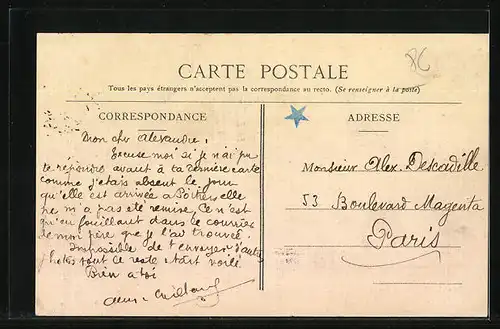 86
CARTE POSTALE
Tous les pays étrangers n'acceptent pas la correspondance au recto. (Se renseigner à la poste)
CORRESPONDANCE
ADRESSE
Mon cher Alexandre,
Excuse moi si je n'ai pu
te répondre avant à ta dernière carte
comme j'étais absent le jour
qu'elle est arrivée a Poitiers elle
ne m'a pas été remise, Ce n'est
qu'en fouillant dans le courrier
de mon père que je l'ai trouvée.
Impossible de t'envoyer d'autres
tout le reste étant voilé
Bien a toi
Monsieur Alex. Descadille
53 Boulevard Magenta
Paris